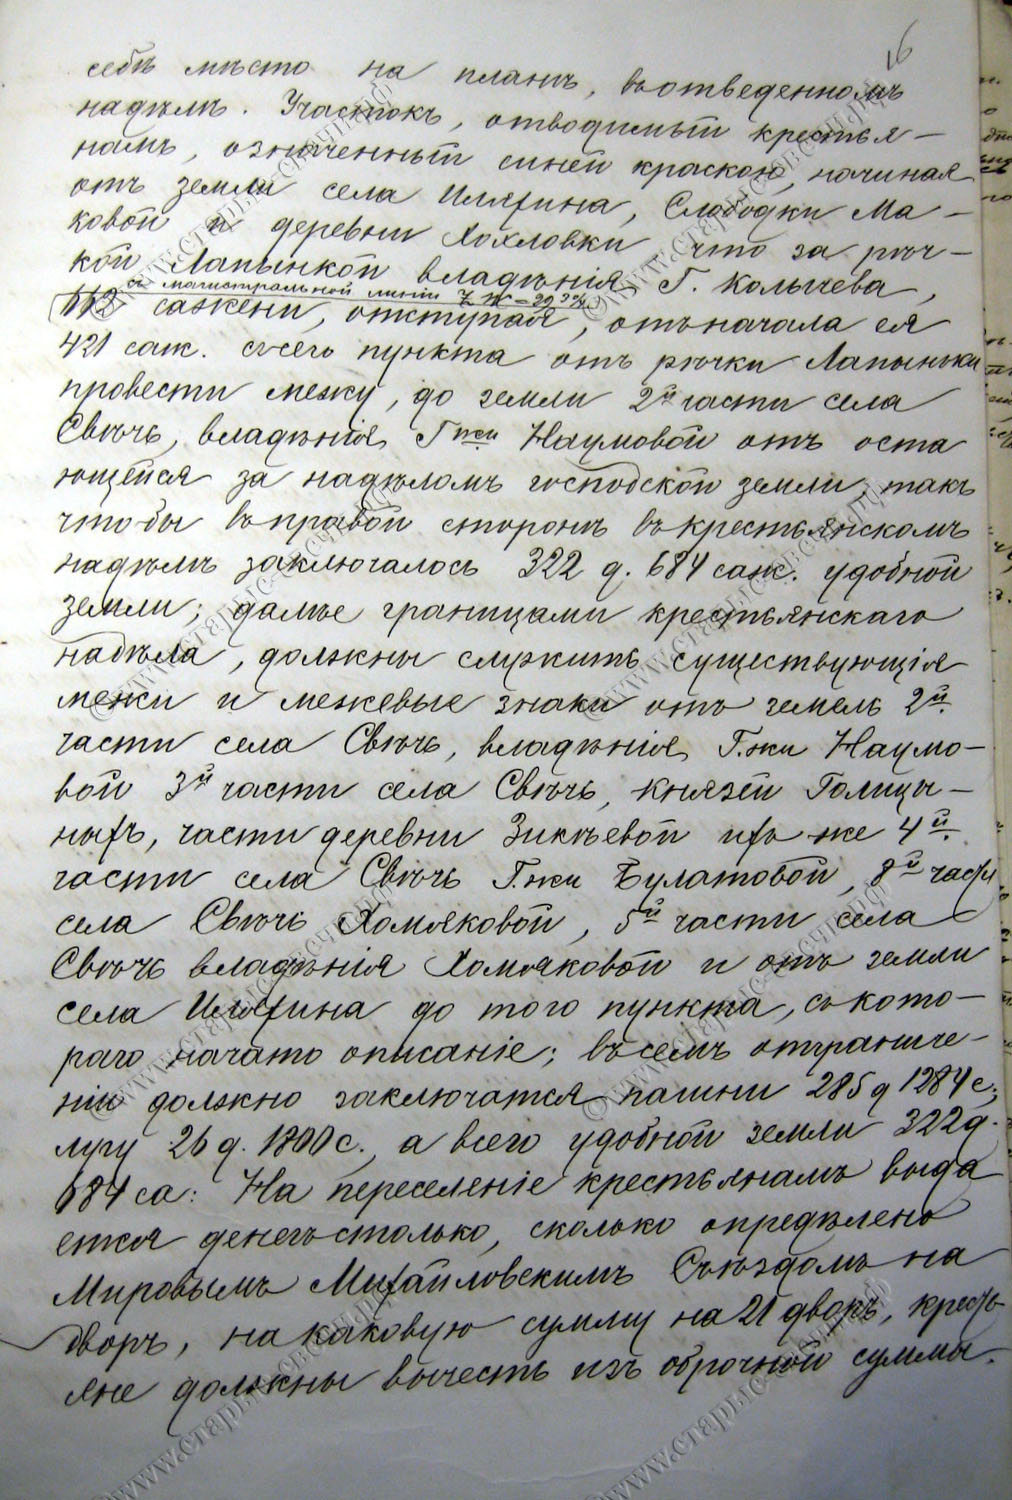 16
себѣ мѣсто на планѣ, въ отведенномъ
надѣлѣ. Участокъ, отводимый крестья-
намъ, означенный синей краскою, начиная
отъ земли села Иляхина, Слободки Ма-
ковой и деревни Хохловки, что за рѣч-
кой Лапынкой владѣнія Г. Колычева,
съ магистральной линіи
сажени, отступая, отъ начала ея
421 саж. съ сего пункта отъ рѣчки Лапыньки
провести межу, до земли 2й части села
Свѣчь, владѣнія Гжи Наумовой отъ оста
ющейся за надѣломъ господской земли, такъ
что бы въ правой сторонѣ въ крестьянскомъ
надѣлѣ заключалось 322 д. 684 саж. удобной
земли; далѣе границами крестьянскаго
надѣла, должны служить существующія
межи и межевые знаки отъ земель 2й
части села Свѣчь, владѣнія Г.жи Наумо-
вой 3й части села Свѣчь, князей Голицы-
ныхъ, части деревни Зикѣевой ихъ же 4й
части села Свѣчь Г.жи Булатовой, 8й части
села Свѣчь Хомяковой, 5й части села
Свѣчь владѣнія Хомяковой и отъ земли
села Иляхина до того пункта, съ кото-
раго начато описаніе; въ семъ отграниче-
ніи должно заключатся пашни 285 д 1284 с;
лугу 26 д. 1800 с., а всего удобной земли 322 д.
684 са: На переселеніе крестьянамъ выда
ется денегъ столько, сколько опредѣлено
Мировымъ Михайловскимъ Съѣздомъ на
дворъ, на каковую сумму на 21 дворъ, кресть
яне должны вычесть изъ оброчной суммы.
© www.старыс-свсчи.рф